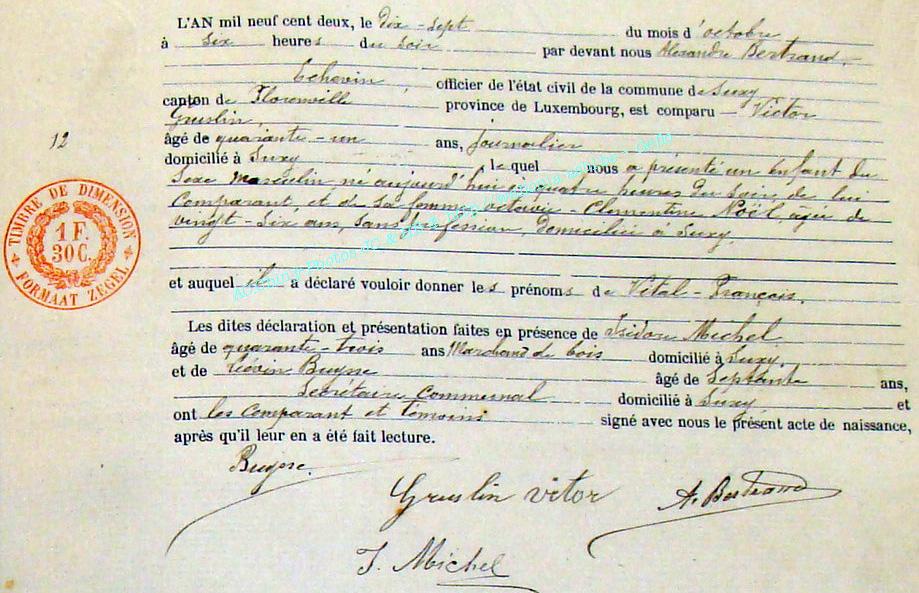 L'AN mil neuf cent deux, le dix-sept du mois d'octobre
à six heures du soir par devant nous Alexandre Bertrand,
Echevin, officier de l'état civil de la commune de Suxy
canton de Florenville province de Luxembourg, est comparu Victor
Gruslin,
12
âgé de quarante-un ans, journalier
domicilié à Suxy lequel nous a présenté un enfant du
Sexe masculin, né aujourd'hui à quatre heures du soir de lui
Comparant, et de sa femme octavie-Clementine Noël, agée de
vingt-six ans, sans profession, Domiciliée à Suxy
TIMBRE DE DIMENSION
1 F.
30 C.
FORMAAT ZEGEL
et auquel il a déclaré vouloir donner les prénoms de Vital-François.
Les dites déclaration et présentation faites en présence de Isidore Michel
âgé de quarante-trois ans Marchand de bois domicilié à Suxy
et de Liévin Buyse âgé de Septante ans,
Secrétaire Communal domicilié à Suxy et
ont les Comparant et témoins signé avec nous le présent acte de naissance,
après qu'il leur en a été fait lecture.
Buyse.
Gruslin victor A. Bertrand
J. Michel